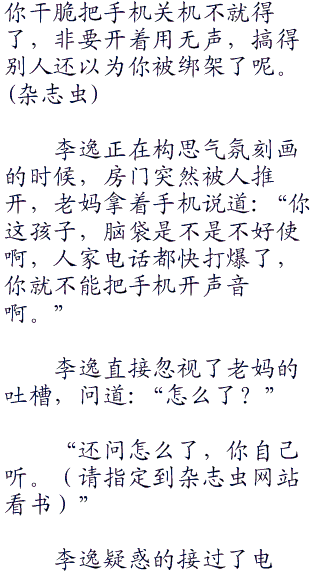 你干脆把手机关机不就得
了，非要开着用无声，搞得
别人还以为你被绑架了呢。
(杂志虫)
李逸正在构思气氛刻画
的时候，房门突然被人推
开，老妈拿着手机说道：“你
这孩子，脑袋是不是不好使
啊，人家电话都快打爆了，
你就不能把手机开声音
啊。”
李逸直接忽视了老妈的
吐槽，问道：“怎么了？”
“还问怎么了，你自己
听。（请指定到杂志虫网站
看书）”
李逸疑惑的接过了电